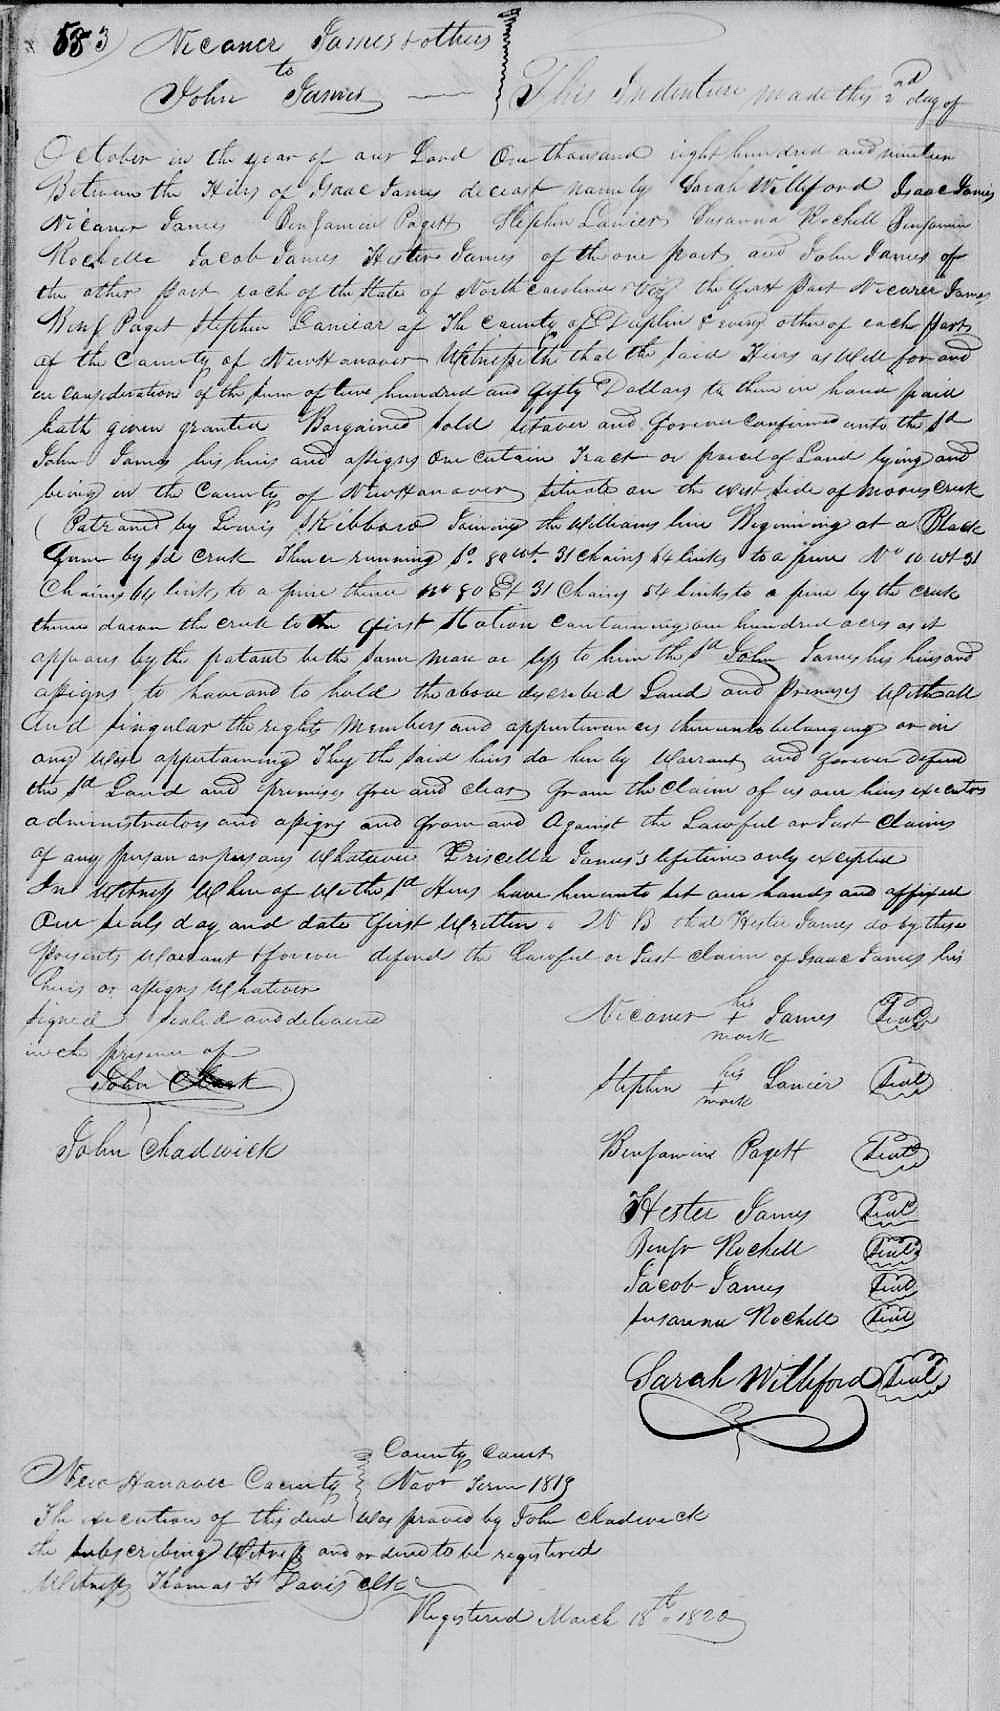 583) Nicaner James & others
to
John James — This Indenture made this 2nd day of
October in the year of our Lord One thousand eight hundred and nineteen
Between the Heirs of Isaac James deceast namely Sarah Williford Isaac James
Nicaner James Benjamin Pagett Stephen Lanier Susanna Rochell Benjamin
Rochelle Jacob James Hester James of the one part and John James of
the other part each of the State of North carolina the first Part Nicaner James
Benj Paget Stephen Laniear of The county of Duplin & every other of each Part
of the County of New Hanover Witnesseth that the said Heirs as Well for and
in consideration of the sum of two hundred and fifty Dollars to them in hand paid
hath given granted Bargained sold setover and forever confirmed unto the sd
John James his heirs and assigns One certain Tract or parcel of Land lying and
being in the County of New Hanover situate on the west side of Moores creek
(Patraned by Lewis Skibboro Joining the Williams line Beginning at a Black
Gum by sd creek Thence running So. 80 wt. 31 chains 64 links to a pine No 10 wt 31
Chains 64 links to a pine thence no 80 Et 31 Chains 54 links to a pine by the creek
thence down the creek to the first station containing one hundred acres as it
appears by the patant be the same more or less to him the sd John James his heirs and
assigns to have and to hold the above described Land and Premises With all
and singular the rights Members and appurtenances thereunto belonging or in
any wise appertaining They the said heirs do here by Warrant and forever defend
the sd Land and premises free and clear from the Claim of us our heirs executors
administrators and assigns and from and Against the Lawful or Just Claims
of any person or persons Whatever Priscella James's lifetime only excepted
In Witness Where of We the sd Heirs have hereunto set our hands and affixed
Our seals day and date first Written N B that Hester James do by these
Presents Warrant & forever defend the Lawful or Just claim of Isaac James his
heirs or assigns Whatever
signed sealed and delivered
in the presence of
John Clark
John Chadwick
Nicaner his + mark James Seal
Stephen his + mark Lanier Seal
Benjamine Pagett Seal
Hester James Seal
Benjn Rochell Seal
Jacob James Seal
Susanna Rochell Seal
Sarah Williford Seal
County Court
New Hanover County Novr Term 1819
The execution of this deed was proved by John Chadwick
the subscribing Witness and ordered to be registered
Witness Thomas F Davis Clk
Registered March 18th 1820